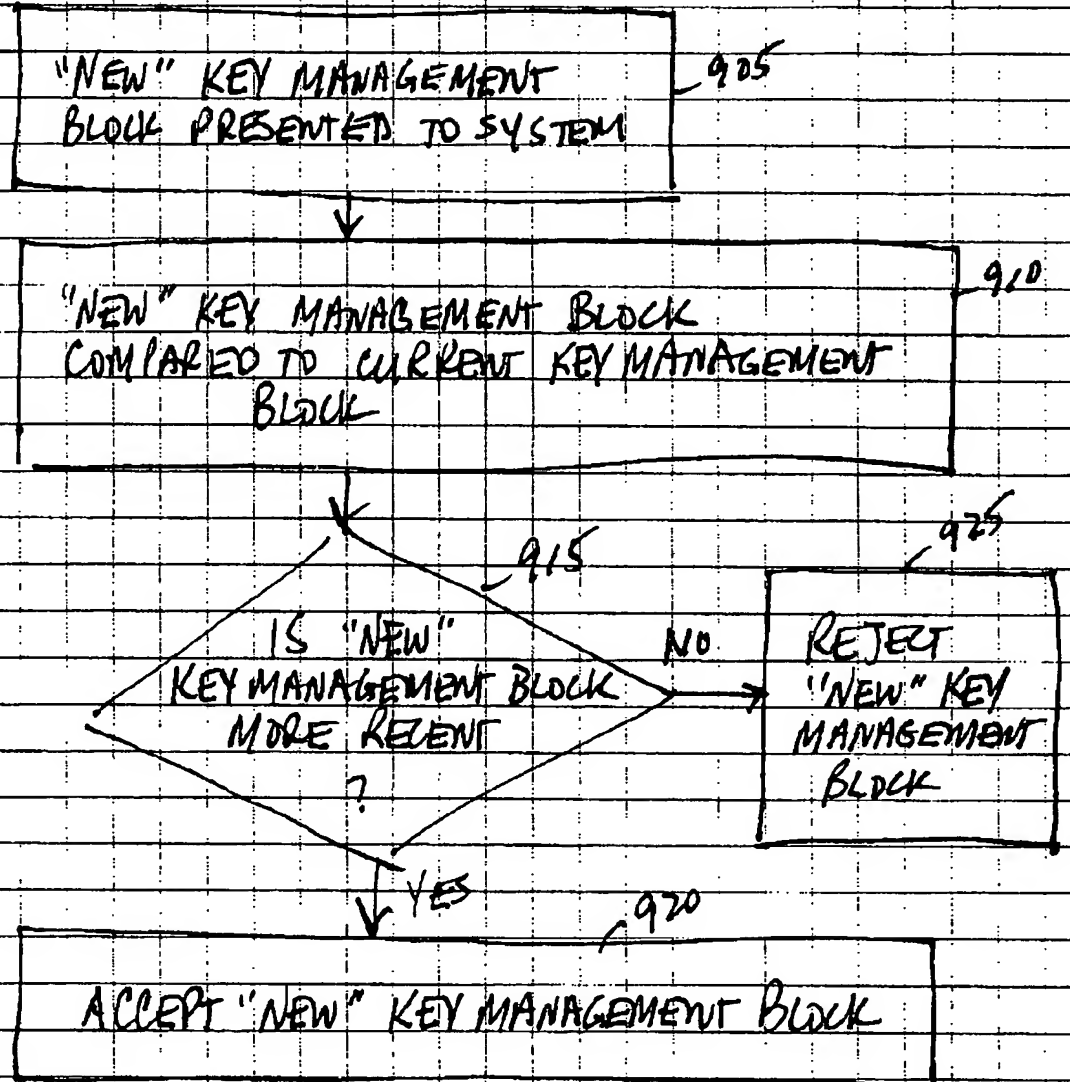 "NEW" KEY MANAGEMENT
BLOCK PRESENTED TO SYSTEM
905
"NEW" KEY MANAGEMENT BLOCK
COMPARED TO CURRENT KEY MANAGEMENT
BLOCK
910
915
IS "NEW"
KEY MANAGEMENT BLOCK
MORE RECENT
?
NO
925
REJECT
"NEW" KEY
MANAGEMENT
BLOCK
YES
920
ACCEPT "NEW" KEY MANAGEMENT BLOCK